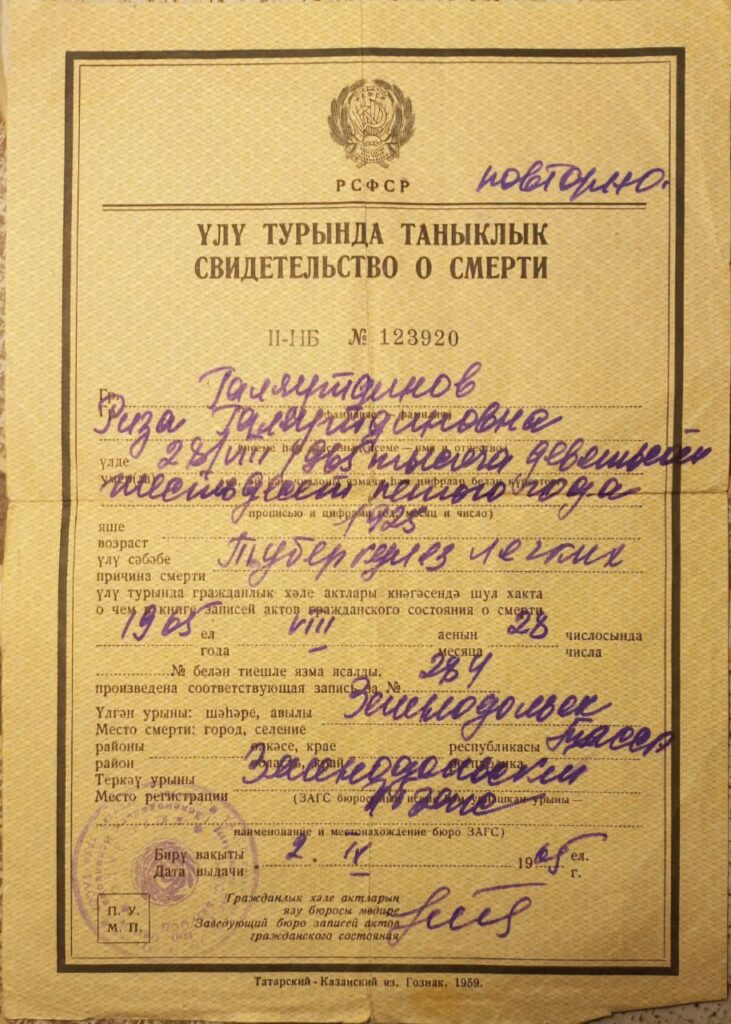 РСФСР
повторно.
ҮЛҮ ТУРЫНДА ТАНЫКЛЫК
СВИДЕТЕЛЬСТВО О СМЕРТИ
II-НБ № 123920
Гр. Галяутдинов
(фамилиясе — фамилия)
Риза Галяутдиновна
үлде 28/VIII 1965 тысяча девятьсот
шестьдесят пятого года
прописью и цифрами год, месяц и число)
яше 1925
возраст
үлү сәбәбе Туберкулез легких
причина смерти
үлү турында гражданлык хәле актлары кнәгәсендә шул хакта
о чем в книге записей актов гражданского состояния о смерти
1965 ел VIII аенын 28 числосында
года месяца числа
№ белән тиешле язма ясалды, 284
произведена соответствующая запись за №
Үлгән урыны: шәһәре, авылы Зеленодольск
Место смерти: город, селение
районы өлкәсе, крае республикасы ТАССР
район область, край республика
Теркәү урыны Зеленодольский
Место регистрации (ЗАГС бюросының исеме һәм урнашкан урыны —
ЗАГС
наименование и местонахождение бюро ЗАГС)
Бирү вакыты 2. IX 1965 ел.
Дата выдачи г.
П. У.
М. П.
Гражданлык хәле актларын
язу бюросы мөдире
Заведующий бюро записей актов
гражданского состояния
Татарский-Казанский яз. Гознак. 1959.